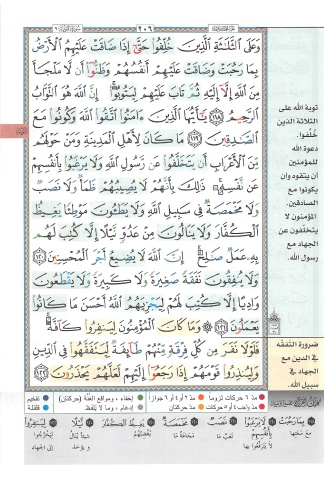 ٢٠٦
وَعَلَى الثَّلَاثَةِ الَّذِينَ خُلِّفُوا حَتَّىٰ إِذَا ضَاقَتْ عَلَيْهِمُ الْأَرْضُ
بِمَا رَحُبَتْ وَضَاقَتْ عَلَيْهِمْ أَنفُسُهُمْ وَظَنُّوا أَن لَّا مَلْجَأَ
مِنَ اللَّهِ إِلَّا إِلَيْهِ ثُمَّ تَابَ عَلَيْهِمْ لِيَتُوبُوا إِنَّ اللَّهَ هُوَ التَّوَّابُ
الرَّحِيمُ ١١٨ يَا أَيُّهَا الَّذِينَ آمَنُوا اتَّقُوا اللَّهَ وَكُونُوا مَعَ
الصَّادِقِينَ ١١٩ مَا كَانَ لِأَهْلِ الْمَدِينَةِ وَمَنْ حَوْلَهُم
مِّنَ الْأَعْرَابِ أَن يَتَخَلَّفُوا عَن رَّسُولِ اللَّهِ وَلَا يَرْغَبُوا بِأَنفُسِهِمْ
عَن نَّفْسِهِ ذَٰلِكَ بِأَنَّهُمْ لَا يُصِيبُهُمْ ظَمَأٌ وَلَا نَصَبٌ
وَلَا مَخْمَصَةٌ فِي سَبِيلِ اللَّهِ وَلَا يَطَئُونَ مَوْطِئًا يَغِيظُ
الْكُفَّارَ وَلَا يَنَالُونَ مِنْ عَدُوٍّ نَّيْلًا إِلَّا كُتِبَ لَهُم
بِهِ عَمَلٌ صَالِحٌ إِنَّ اللَّهَ لَا يُضِيعُ أَجْرَ الْمُحْسِنِينَ ١٢٠
وَلَا يُنفِقُونَ نَفَقَةً صَغِيرَةً وَلَا كَبِيرَةً وَلَا يَقْطَعُونَ
وَادِيًا إِلَّا كُتِبَ لَهُمْ لِيَجْزِيَهُمُ اللَّهُ أَحْسَنَ مَا كَانُوا
يَعْمَلُونَ ١٢١ وَمَا كَانَ الْمُؤْمِنُونَ لِيَنفِرُوا كَافَّةً
فَلَوْلَا نَفَرَ مِن كُلِّ فِرْقَةٍ مِّنْهُمْ طَائِفَةٌ لِّيَتَفَقَّهُوا فِي الدِّينِ
وَلِيُنذِرُوا قَوْمَهُمْ إِذَا رَجَعُوا إِلَيْهِمْ لَعَلَّهُمْ يَحْذَرُونَ ١٢٢
توبة الله على
الثلاثة الذين
خُلِّفوا.
دعوة الله
المؤمنين إلى
ان يتقوه وان
يكونوا مع
الصادقين.
المؤمنون لا
يتخلّفون عن
الجهاد مع
رسول الله.
ضرورة التفقه
في الدين مع
الجهاد في
سبيل الله.
مدّ ٦ حركات لزوماً
مدّ ٢ أو ٤ أو ٦ جوازاً
إخفاء، ومواقع الغُنَّة (حركتان)
تفخيم
مدّ واجب ٤ أو ٥ حركات
مدّ حركتان
إدغام، وما لا يُلفَظ
قلقلة
بِمَا رَحُبَتْ
مع سعتها
لَا يَرْغَبُوا بِأَنفُسِهِمْ
لا يترفعوا بها
نَصَبٌ
تعب ما
مَخْمَصَةٌ
مجاعة ما
يَغِيظُ الْكُفَّارَ
يغضبهم
نَيْلًا
لِيَنفِرُوا
ليخرجوا
إلى الجهاد